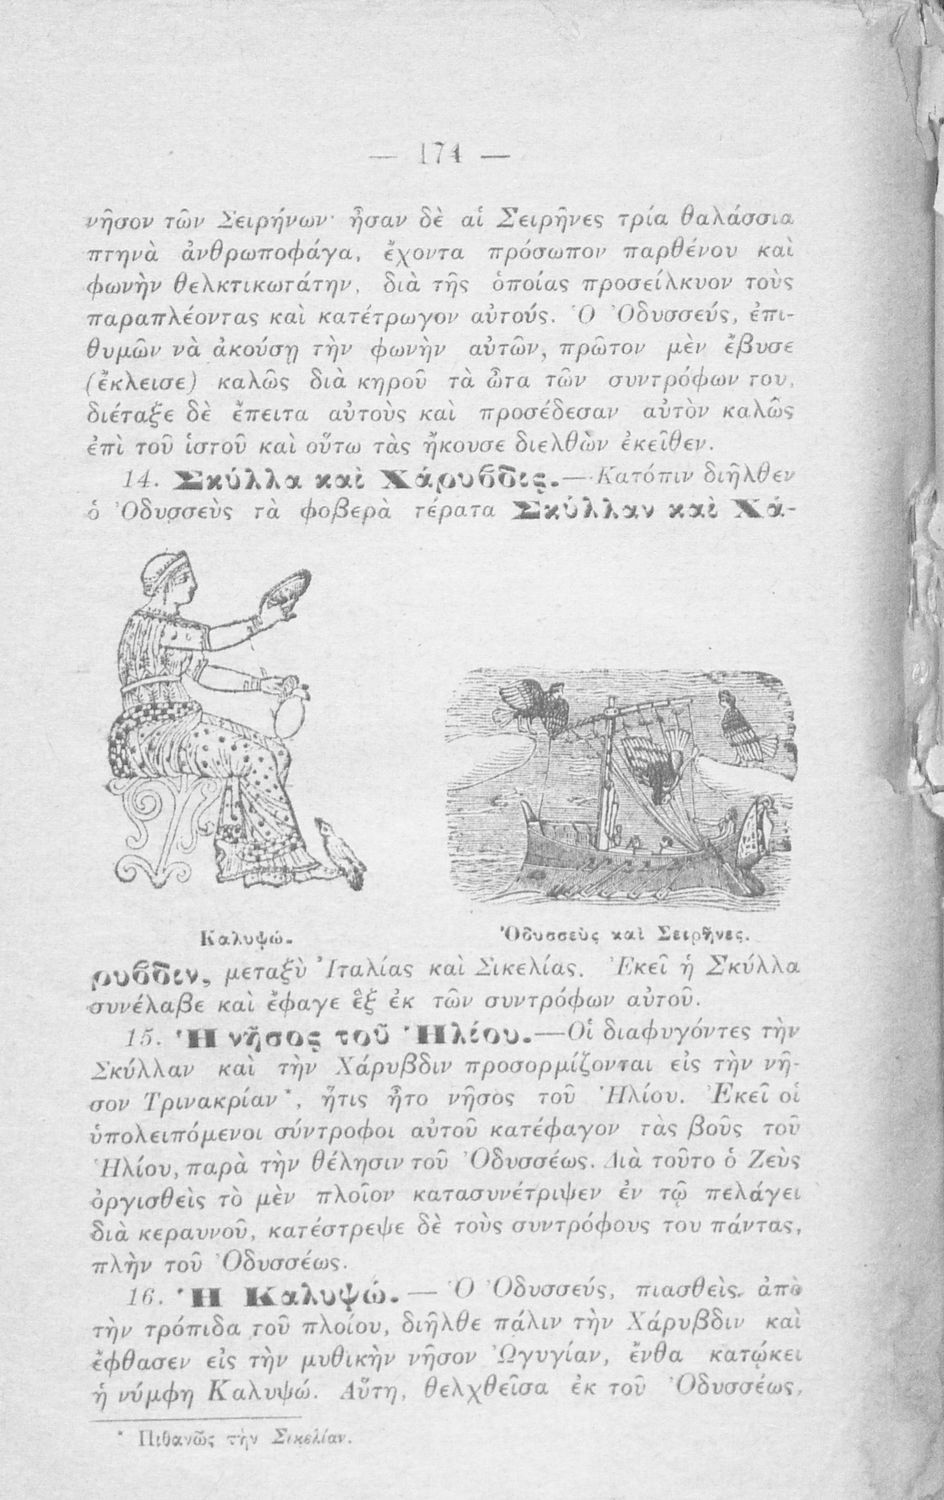 — 174 —
νῆσον τῶν Σειρήνων· ἦσαν δὲ αἱ Σειρῆνες τρία θαλάσσια
πτηνὰ ἀνθρωποφάγα, ἔχοντα πρόσωπον παρθένου καὶ
φωνὴν θελκτικωτάτην, διὰ τῆς ὁποίας προσείλκυον τοὺς
παραπλέοντας καὶ κατέτρωγον αὐτούς. Ὁ Ὀδυσσεύς, ἐπι-
θυμῶν νὰ ἀκούσῃ τὴν φωνὴν αὐτῶν, πρῶτον μὲν ἔβυσε
(ἔκλεισε) καλῶς διὰ κηροῦ τὰ ὦτα τῶν συντρόφων του,
διέταξε δὲ ἔπειτα αὐτοὺς καὶ προσέδεσαν αὐτὸν καλῶς
ἐπὶ τοῦ ἱστοῦ καὶ οὕτω τὰς ἤκουσε διελθὼν ἐκεῖθεν.
14. Σκύλλα καὶ Χάρυβδις.— Κατόπιν διῆλθεν
ὁ Ὀδυσσεὺς τὰ φοβερὰ τέρατα Σκύλλαν καὶ Χά-
Καλυψώ.
Ὀδυσσεὺς καὶ Σειρῆνες.
ρυβδιν, μεταξὺ Ἰταλίας καὶ Σικελίας. Ἐκεῖ ἡ Σκύλλα
συνέλαβε καὶ ἔφαγε ἓξ ἐκ τῶν συντρόφων αὐτοῦ.
15. Ἡ νῆσος τοῦ Ἡλίου.—Οἱ διαφυγόντες τὴν
Σκύλλαν καὶ τὴν Χάρυβδιν προσορμίζονται εἰς τὴν νῆ-
σον Τρινακρίαν*, ἥτις ἦτο νῆσος τοῦ Ἡλίου. Ἐκεῖ οἱ
ὑπολειπόμενοι σύντροφοι αὐτοῦ κατέφαγον τὰς βοῦς τοῦ
Ἡλίου, παρὰ τὴν θέλησιν τοῦ Ὀδυσσέως. Διὰ τοῦτο ὁ Ζεὺς
ὀργισθεὶς τὸ μὲν πλοῖον κατασυνέτριψεν ἐν τῷ πελάγει
διὰ κεραυνοῦ, κατέστρεψε δὲ τοὺς συντρόφους του πάντας,
πλὴν τοῦ Ὀδυσσέως.
16. Ἡ Καλυψώ.— Ὁ Ὀδυσσεύς, πιασθεὶς ἀπὸ
τὴν τρόπιδα τοῦ πλοίου, διῆλθε πάλιν τὴν Χάρυβδιν καὶ
ἔφθασεν εἰς τὴν μυθικὴν νῆσον Ὠγυγίαν, ἔνθα κατῴκει
ἡ νύμφη Καλυψώ. Αὕτη, θελχθεῖσα ἐκ τοῦ Ὀδυσσέως,
* Πιθανῶς τὴν Σικελίαν.